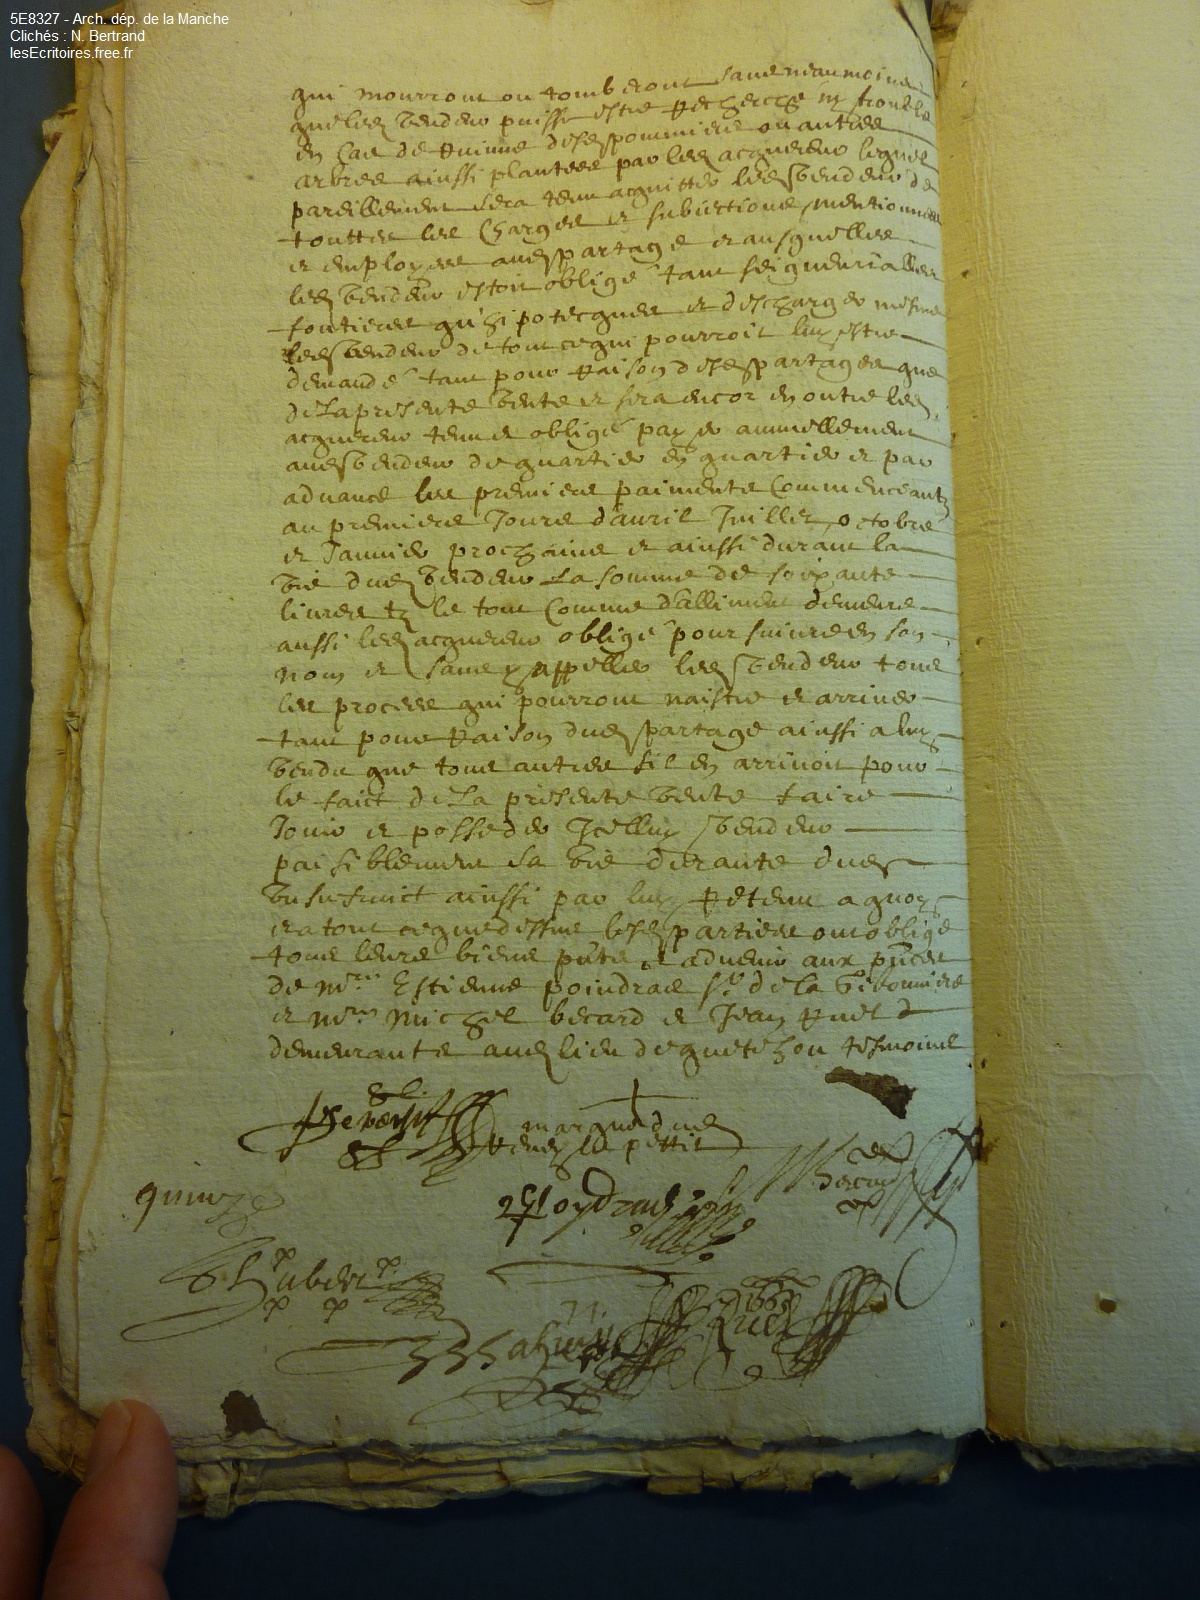 5E8327 - Arch. dép. de la Manche
Clichés : N. Bertrand
lesEcritoires.free.fr
qui mourront ou tomberont sans neanmoins
que led vendeur puisse estre recherché ny troublé
en cas de ruinne desd pommiers ou autres
arbres ainssi plantees par led acquereur lequel
pareillement sera tenu acquitter led vendeur de
touttes les charges et subiections mentionnees
et employees aud partage et ausquelles
led vendeur estoit obligé tant seigneurialles
fontieres qu'hipotecques et descharger mesme
led vendeur de tout ce qui pourroit luy estre
demandé tant pour raison desd partages que
de la presente vente et sera encor en outre led
acquereur tenu et obligé payer annuellement
aud vendeur de quartier en quartier et par
advance les premiers paiments commenceants
au premiers jours d'avril juillet octobre
et janvier prochains et ainssi durant la
vie dud vendeur la somme de soixante
livres tz le tout comme d'alliment demeure
aussi led acquereur obligé poursuivre en son
nom et sans y appeller led vendeur tous
les proces qui pourront naistre et arriver
tant pour raison dud partage ainssi a luy
vendu que tous autres s'il en arrivoit pour
le faict de la presente vente faire
jouir et posseder icelluy vendeur
paisiblement sa vie durante dud
usufruict ainssi par luy retenu a quoy
et a tout ce que dessus lesd parties ont obligé
tous leurs biens pnts et advenir aux pnces
de Me Estienne poindrad sr de la
et Me Michel becard et Jean ruel
demeurants aud lieu de quetehou tesmoins
marque dud
le pettit
Becard
quinze